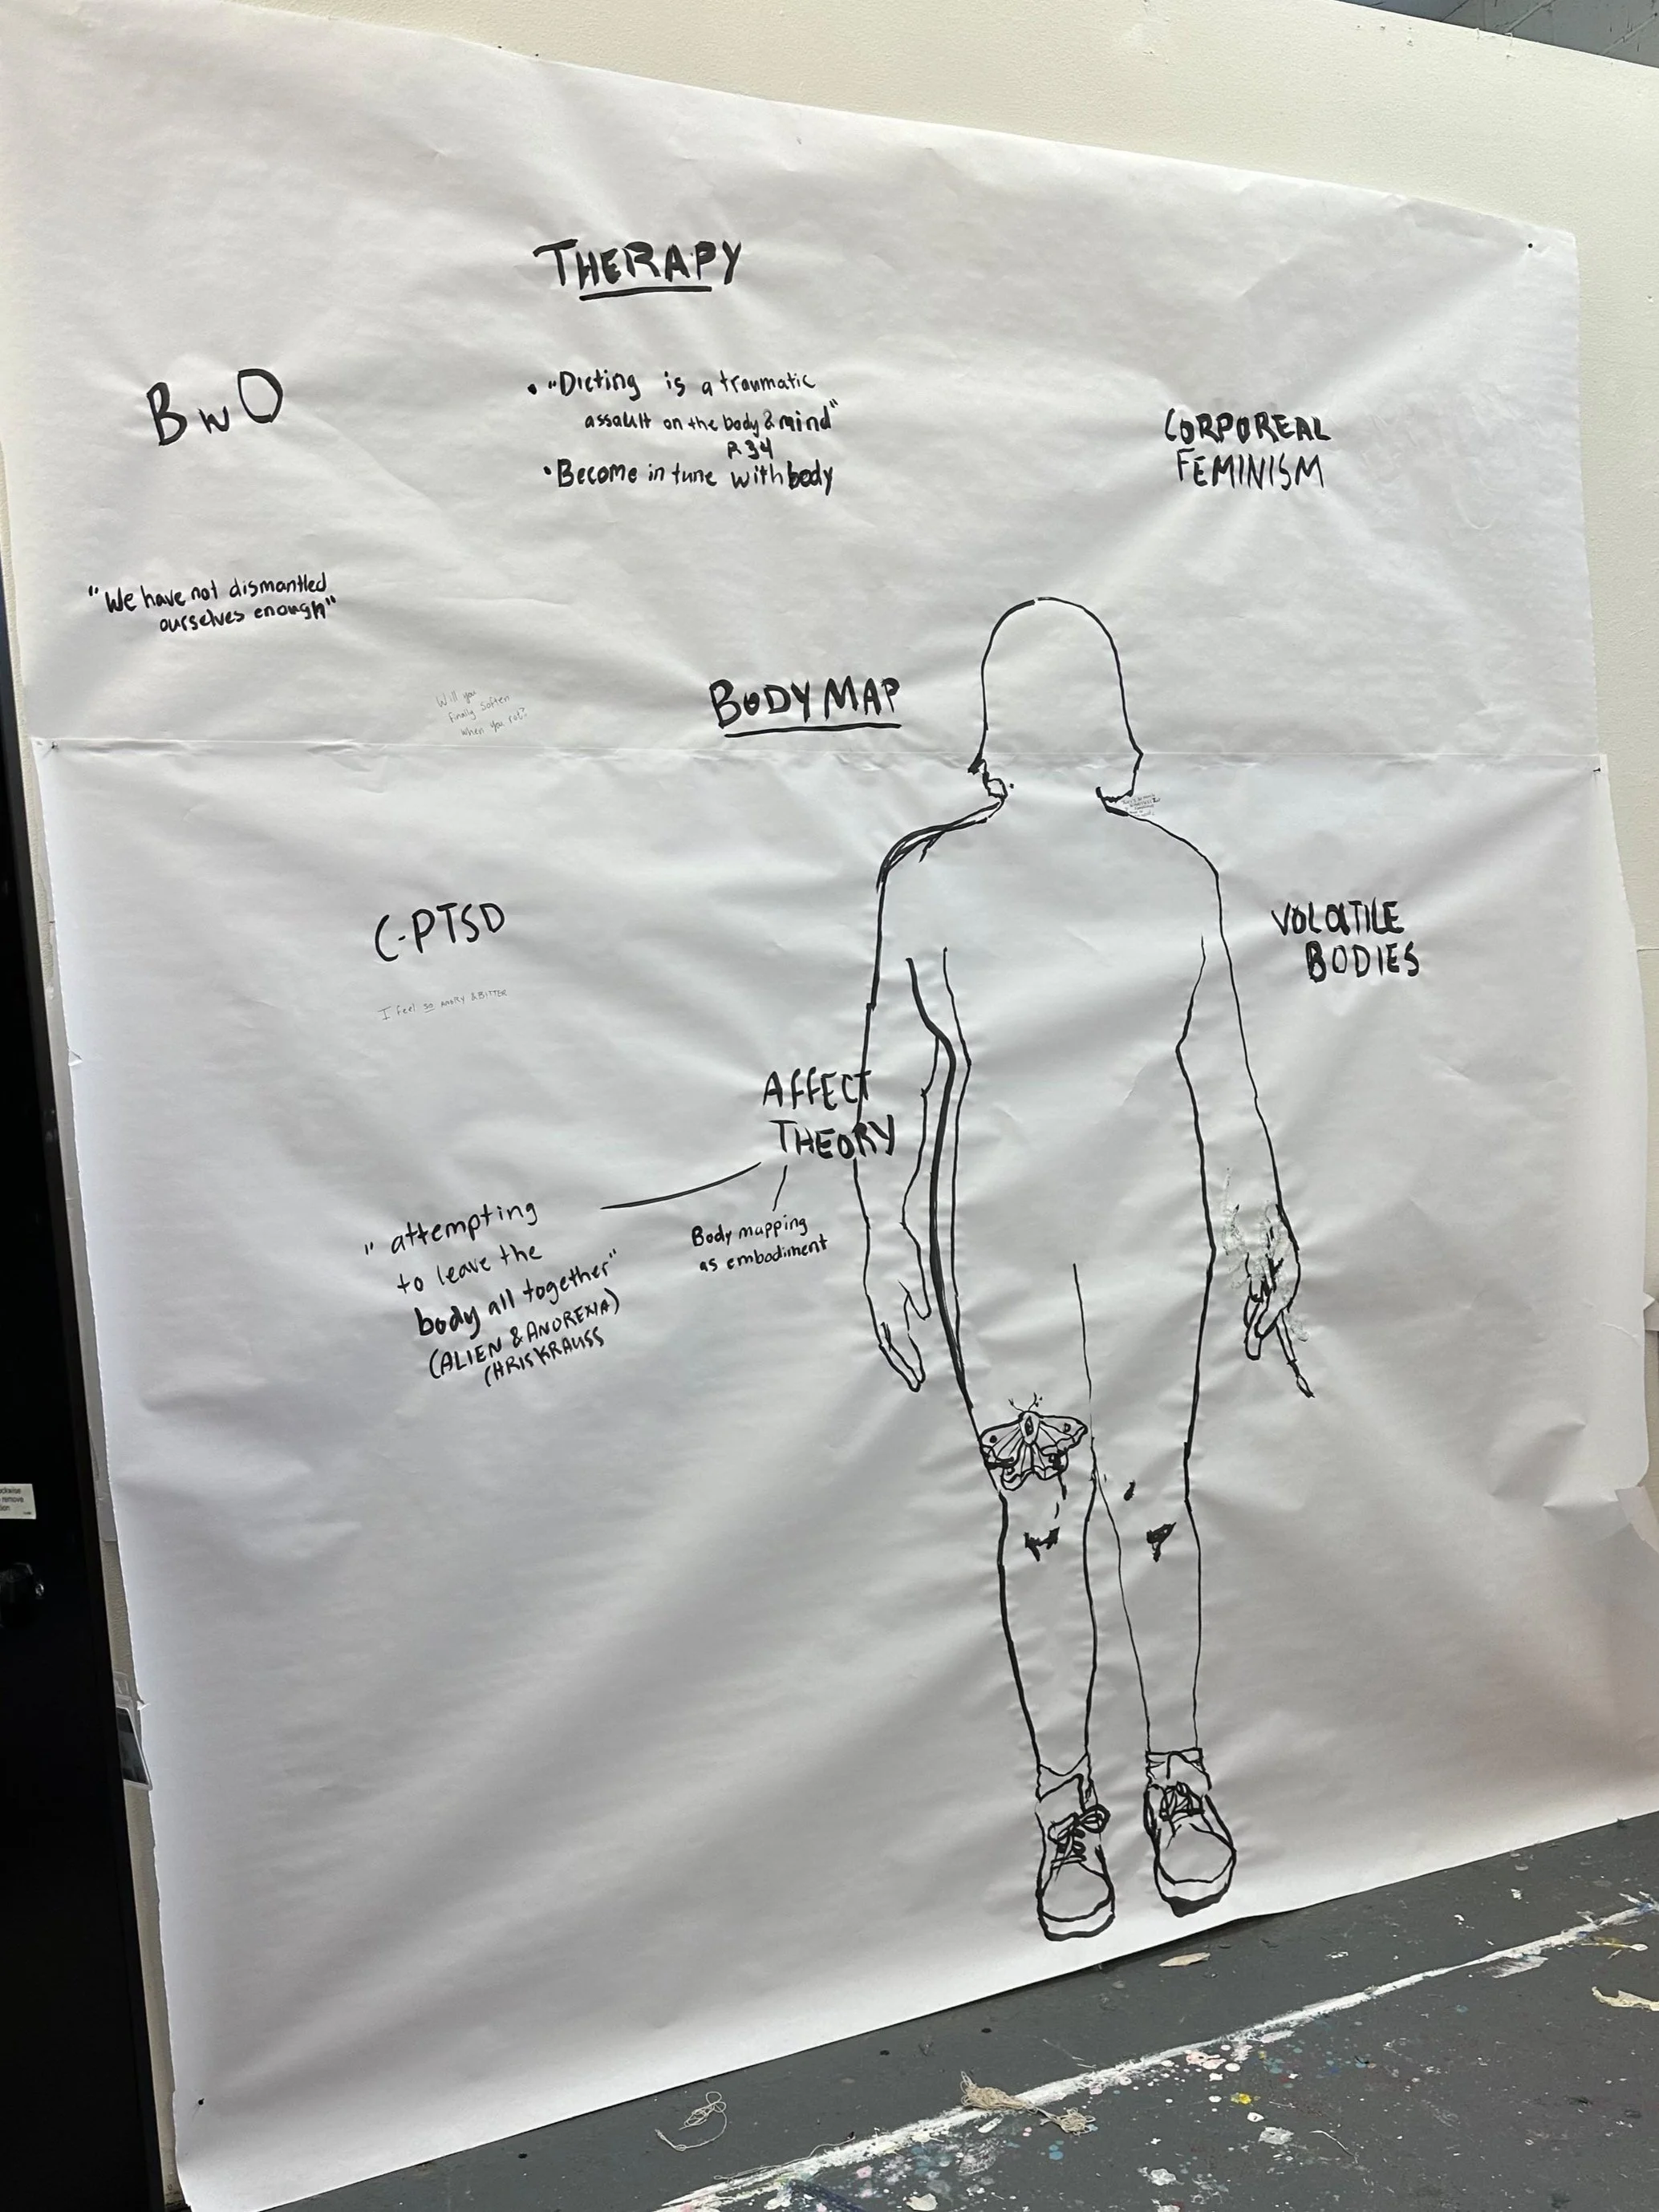 THERAPY
BwO
• "Dieting is a traumatic
assault on the body & mind"
P. 34
• Become in tune with body
CORPOREAL
FEMINISM
"We have not dismantled
ourselves enough"
Will you
finally soften
when you rot?
BODY MAP
C-PTSD
I feel so ANGRY & BITTER
VOLATILE
BODIES
AFFECT
THEORY
"attempting
to leave the
body all together"
(ALIEN & ANOREXIA)
CHRIS KRAUSS
Body mapping
as embodiment